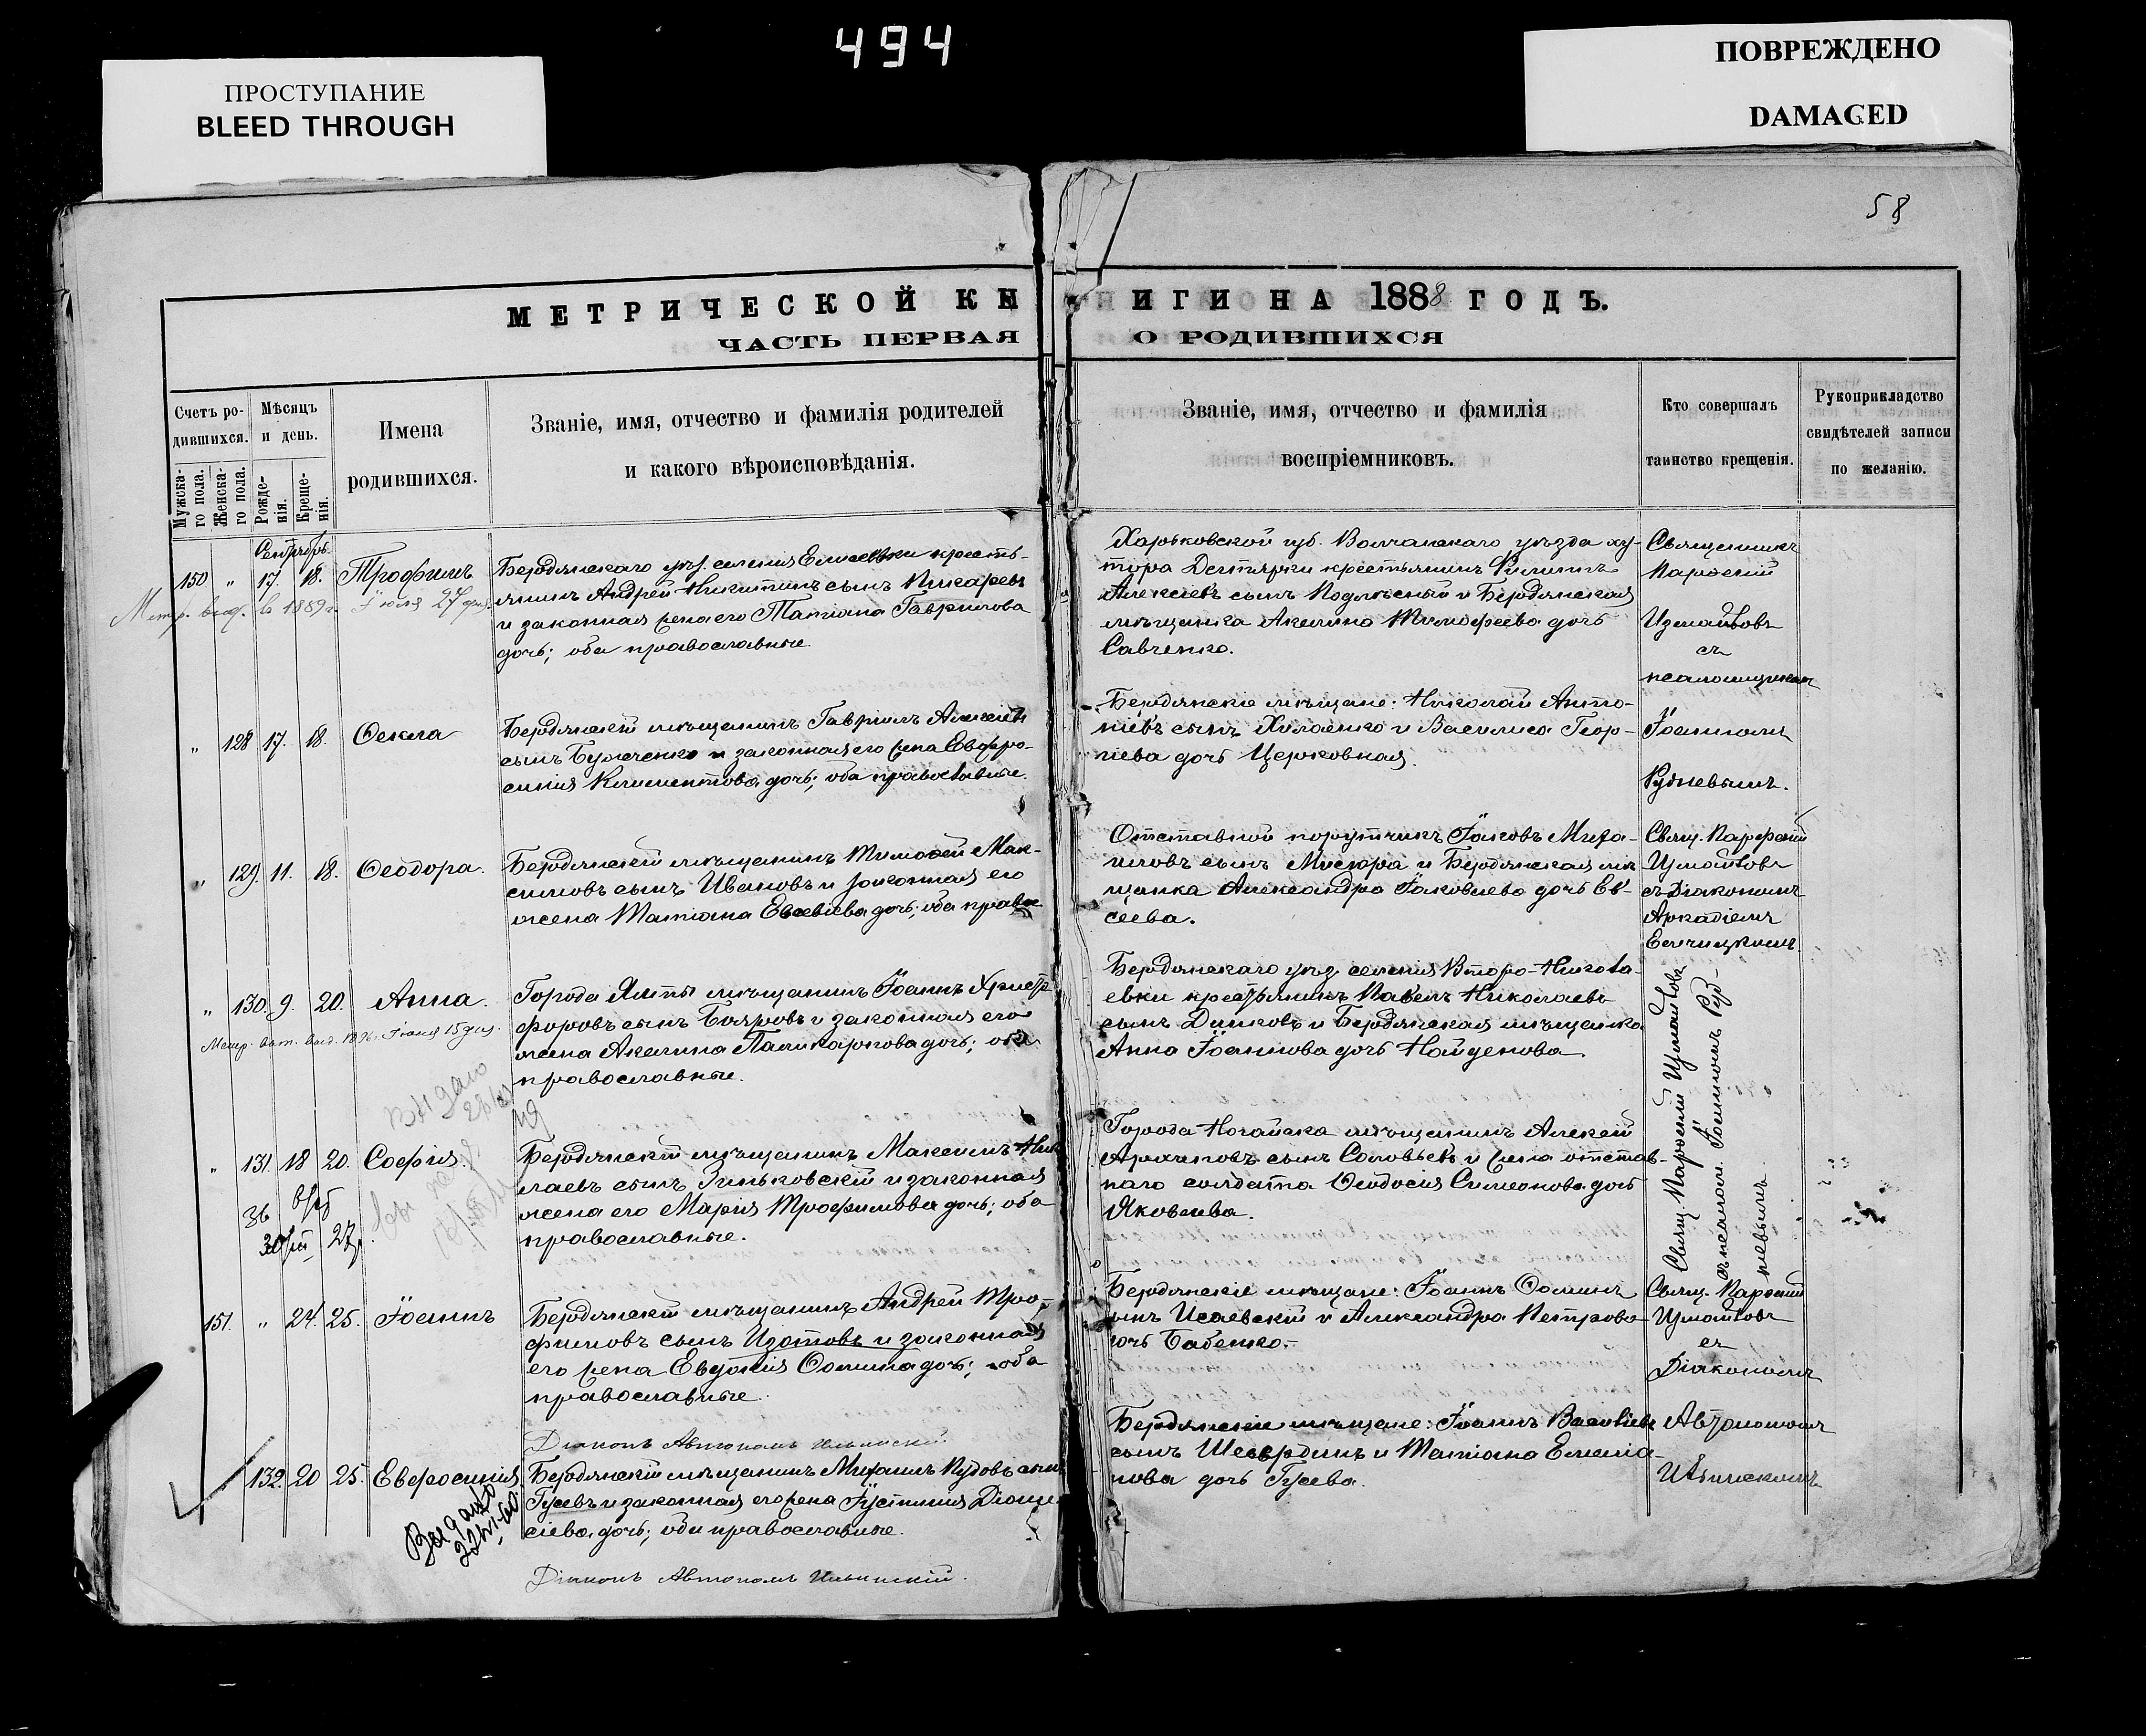 494
ПРОСТУПАНИЕ
BLEED THROUGH
ПОВРЕЖДЕНО
DAMAGED
58
МЕТРИЧЕСКОЙ КН
ИГИ НА 1888 ГОДЪ.
ЧАСТЬ ПЕРВАЯ
О РОДИВШИХСЯ
Счетъ ро-
дившихся.
Мужска-
го пола.
Женска-
го пола.
Мѣсяцъ
и день.
Рожде-
нія.
Креще-
нія.
Имена
родившихся.
Званіе, имя, отчество и фамилія родителей
и какого вѣроисповѣданія.
Званіе, имя, отчество и фамилія
воспріемниковъ.
Кто совершалъ
таинство крещенія.
Рукоприкладство
свидѣтелей записи
по желанію.
150 " 17. 18. Трофимъ
Бердянскаго уѣз. селенія Елисеевки кресть-
янинъ Андрей Никитинъ сынъ
и законная жена его Татіана Гаврилова
дочь; оба православные.
Харьковской губ. Волчанскаго уѣзда ху-
тора Дегтярки крестьянинъ Филиппъ
Алексіевъ сынъ и Бердянская
мѣщанка Акилина Тимофеева дочь
Савченко.
Священникъ
Парфеній
Измайловъ
съ
псаломщикомъ
Метр. выд. въ 1889 г. Іюля 27 дня.
" 128 17. 18. Ѳекла
Бердянскій мѣщанинъ Гавріилъ Алексіевъ
сынъ и законная его жена Евфро-
синія Климентова дочь; оба православные.
Бердянскіе мѣщане: Николай Анто-
ніевъ сынъ и Василиса Геор-
гіева дочь Церковная.
Іоанномъ
Рудневымъ.
" 129. 11. 18. Ѳеодора.
Бердянскій мѣщанинъ Тимоѳей Мак-
симовъ сынъ Ивановъ и законная его
жена Татіана Евсевіева дочь; оба правос
Отставной поручикъ Іаковъ Миха-
иловъ сынъ и Бердянская мѣ
щанка Александра Іаковлева дочь Ев-
сеева.
Свящ. Парфеній
Измайловъ
съ Діакономъ
Аркадіемъ
" 130. 9. 20. Анна.
Города Ялты мѣщанинъ Іоаннъ Христо
форовъ сынъ Бояровъ и законная его
жена Акилина дочь; оба
православные.
Бердянскаго уѣзд. селенія Второ-Никола-
евки крестьянинъ Павелъ Николаевъ
сынъ Динковъ и Бердянская мѣщанка
Анна Іоаннова дочь Найденова.
Свящ. Парфеній Измайловъ
съ псалом. Іоанномъ Руд-
невымъ
Іюня 15 дня.
Выдано
" 131. 18 20. Софія.
Бердянскій мѣщанинъ Максимъ Нико
лаевъ сынъ Зиньковскій и законная
жена его Марія Трофимова дочь; оба
православные.
Города Ногайска мѣщанинъ Алексѣй
Архиповъ сынъ Соловьевъ и жена отстав-
наго солдата Ѳеодосія Симеонова дочь
Яковлева.
151. " 24. 25. Іоаннъ
Бердянскій мѣщанинъ Андрей Тро-
фимовъ сынъ Изотовъ и законная
его жена Евдокія Ѳомина дочь; оба
православные.
Бердянскіе мѣщане: Іоаннъ Ѳоминъ
ынъ Исаевскій и Александра Петрова
очь Бабенко.
Свящ. Парфеній
Измайловъ
съ
Діакономъ
Діаконъ Автономъ Ильинскій.
132. 20 25. Евфросинія
Бердянскій мѣщанинъ Михаилъ сынъ
Гусевъ и законная его жена Іустинія Діони
сіева дочь; оба православные.
Бердянскіе мѣщане: Іоаннъ Василіевъ
сынъ и Татіана Емеліа-
нова дочь Гусева.
Автономомъ
Ильинскимъ
Выдано
Діаконъ Автономъ Ильинскій.